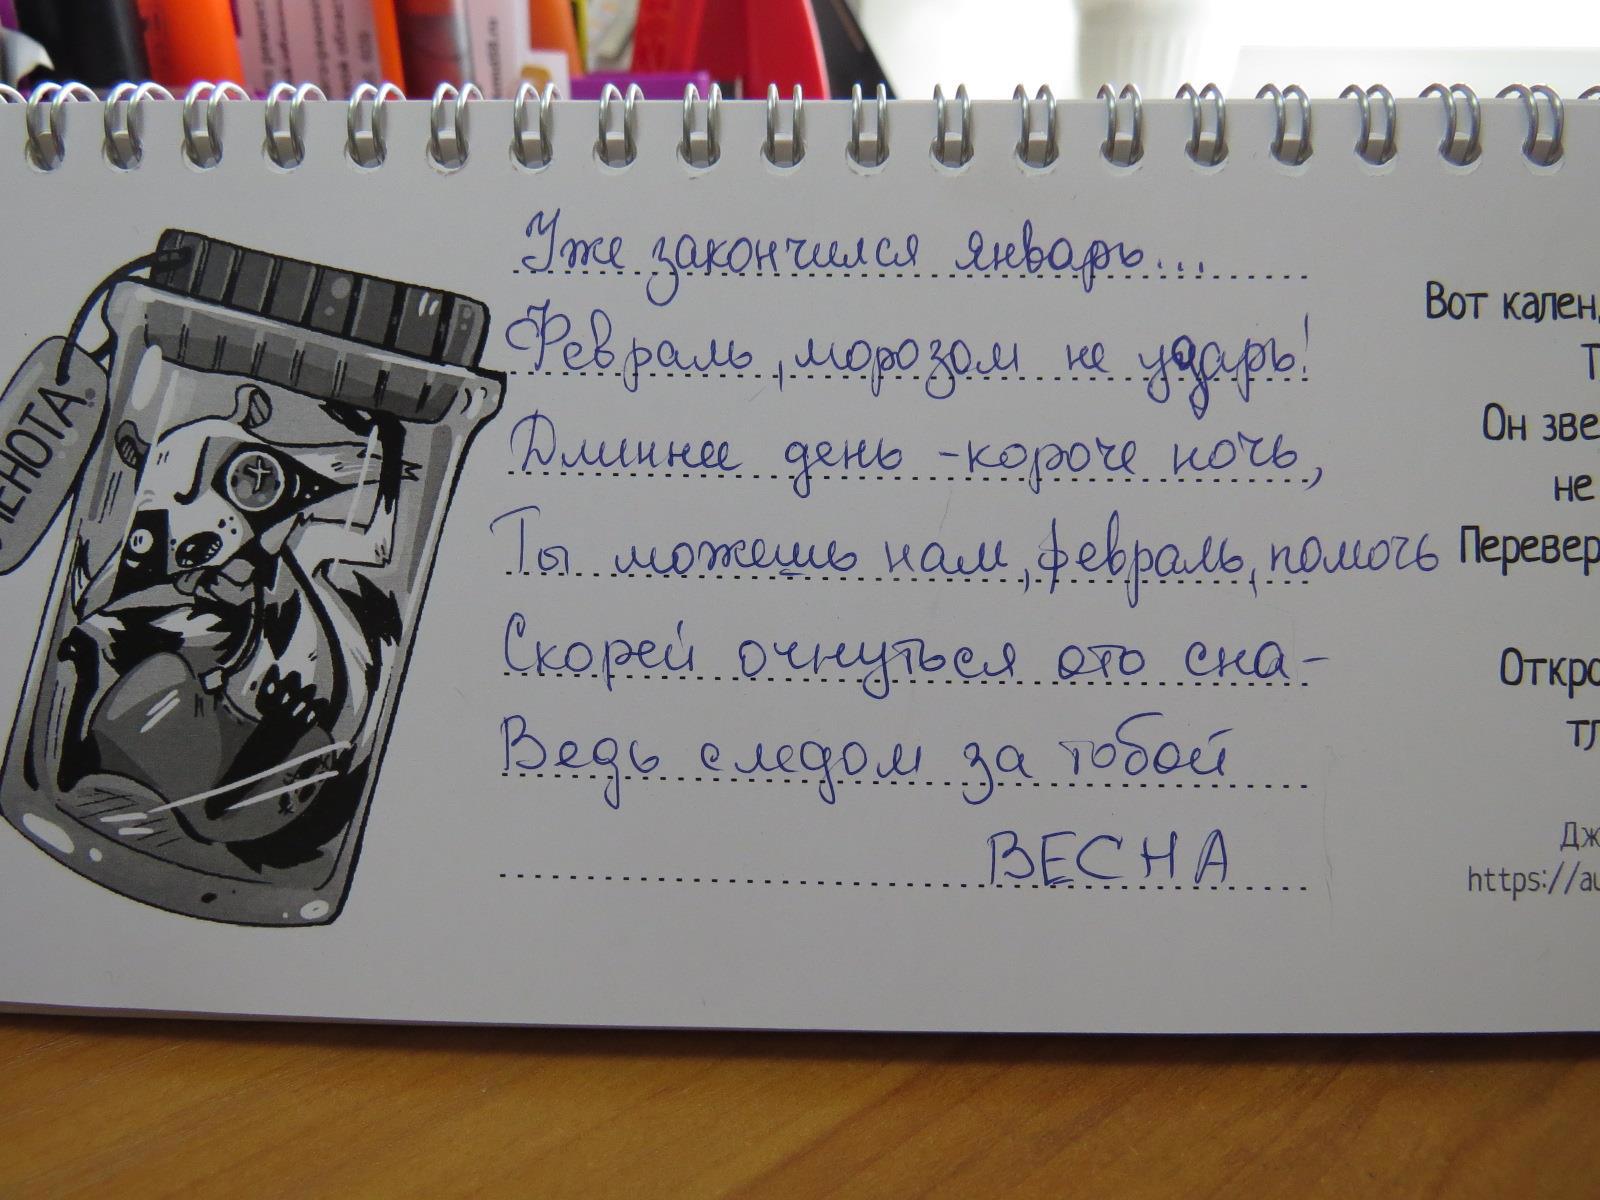 Уже закончился январь...
Февраль, морозом не ударь!
Длиннее день - короче ночь,
Ты можешь нам, февраль, помочь
Скорей очнуться ото сна -
Ведь следом за тобой
ВЕСНА
ЕНОТА
Вот
Он
не
https://au